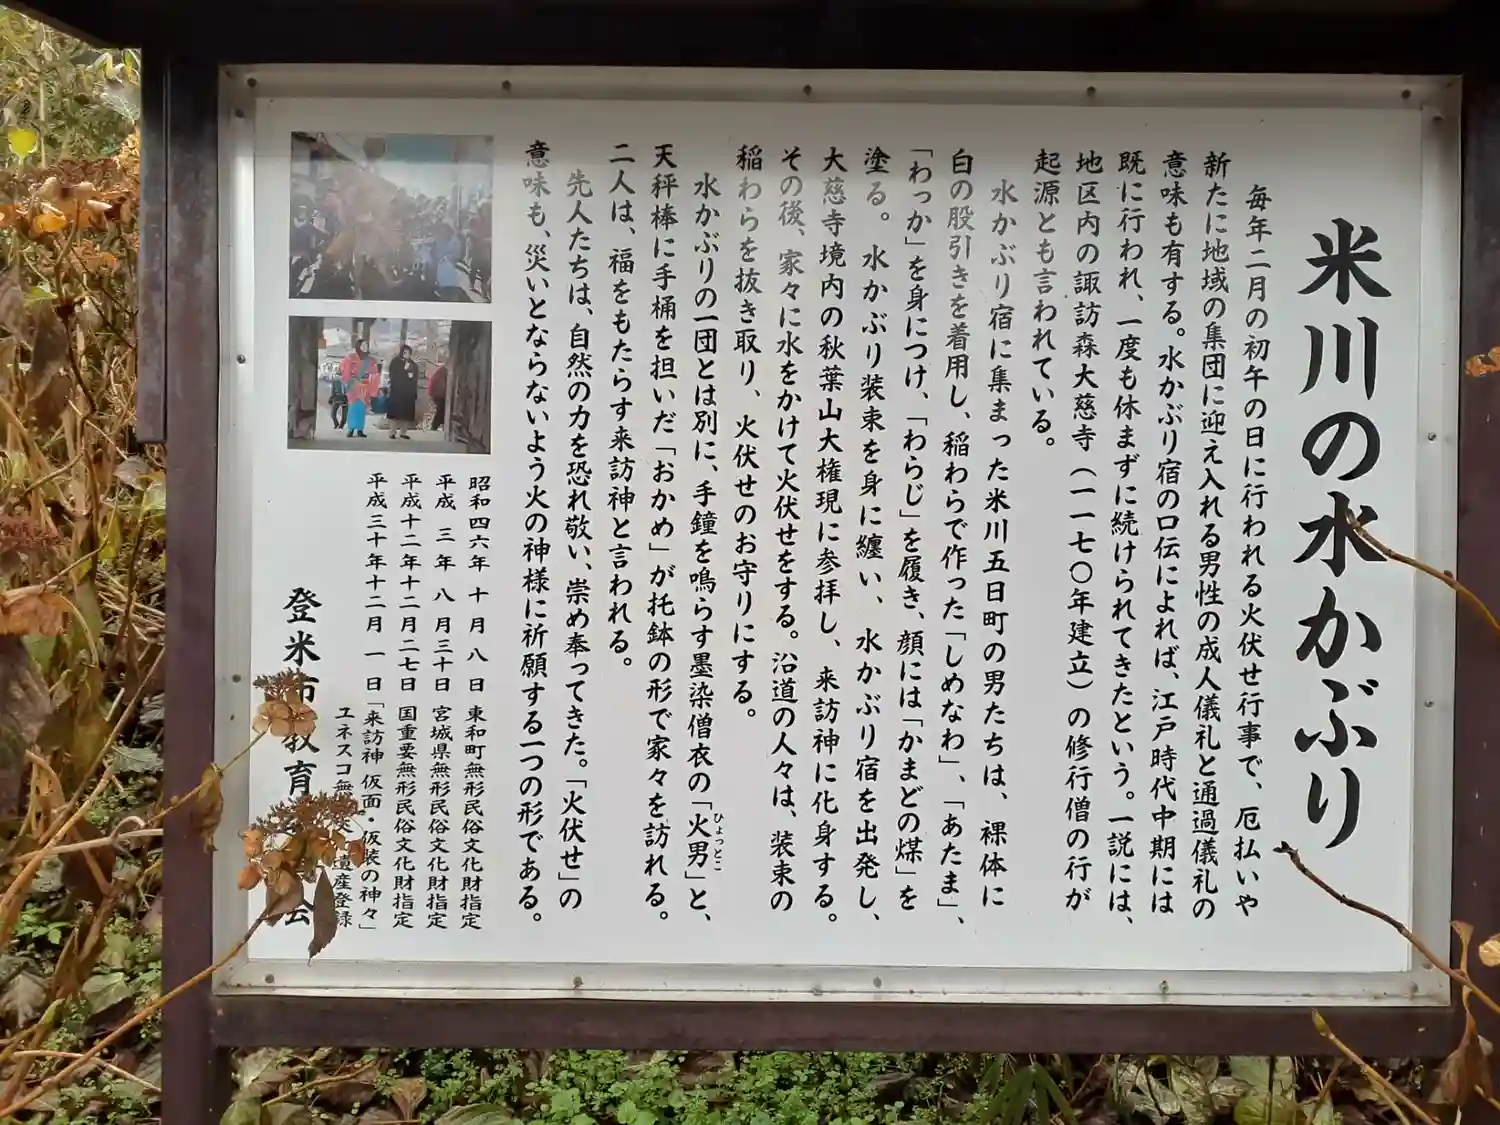 米川の水かぶり
毎年二月の初午の日に行われる火伏せ行事で、厄払いや
新たに地域の集団に迎え入れる男性の成人儀礼と通過儀礼の
意味も有する。水かぶり宿の口伝によれば、江戸時代中期には
既に行われ、一度も休まずに続けられてきたという。一説には、
地区内の諏訪森大慈寺（一一七〇年建立）の修行僧の行が
起源とも言われている。
水かぶり宿に集まった米川五日町の男たちは、裸体に
白の股引きを着用し、稲わらで作った「しめなわ」、「あたま」、
「わっか」を身につけ、「わらじ」を履き、顔には「かまどの煤」を
塗る。水かぶり装束を身に纏い、水かぶり宿を出発し、
大慈寺境内の秋葉山大権現に参拝し、来訪神に化身する。
その後、家々に水をかけて火伏せをする。沿道の人々は、装束の
稲わらを抜き取り、火伏せのお守りにする。
水かぶりの一団とは別に、手鐘を鳴らす墨染僧衣の「火男」と、
ひょっとこ
天秤棒に手桶を担いだ「おかめ」が托鉢の形で家々を訪れる。
二人は、福をもたらす来訪神と言われる。
先人たちは、自然の力を恐れ敬い、崇め奉ってきた。「火伏せ」の
意味も、災いとならないよう火の神様に祈願する一つの形である。
昭和四六年 十月 八日 東和町無形民俗文化財指定
平成 三年 八月三十日 宮城県無形民俗文化財指定
平成十二年十二月二七日 国重要無形民俗文化財指定
平成三十年十二月 一日「来訪神 仮面・仮装の神々」
ユネスコ無 遺産登録
登米市教育 会